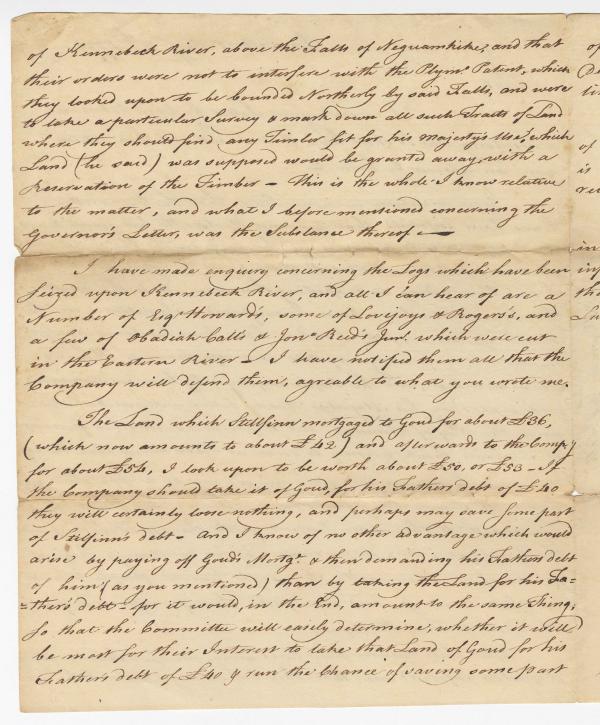 of Kennebeck River, above the Falls of Neguamkike, and that
their orders were not to interfere with the Plymo. Patent, which
they looked upon to be bounded Northerly by said Falls, and were
to take a particular Survey & mark down all such Tracts of Land
where they should find any Timber fit for his majesty's Use, which
Land (he said) was supposed would be granted away, with a
Reservation of the Timber — this is the whole I know relative
to the matter, and what I before mentioned concerning the
Governor's Letter, was the Substance thereof —
I have made enquiry concerning the Logs which have been
seized upon Kennebeck River, and all I can hear of are a
Number of Esqr. Howards, some of Lovejoys & Rogers's, and
a few of Obadiah Call's & Jona. Reed's Junr. which were cut
in the Eastern River — I have notified them all that the
Company will defend them, agreable to what you wrote me.
The Land which Stilfinn mortgaged to Goud for about £36,
(which now amounts to about £42) and afterwards to the Compy
for about £54, I look upon to be worth about £50, or £53 — If
the Company should take it of Goud, for his Fathers debt of £40
they will certainly loose nothing, and perhaps may save some part
of Stilfinn's debt — And I know of no other advantage which would
arise by paying off Goud's Mortge. & then demanding his Fathers debt
of him (as you mentioned) than by taking the Land for his Fa=
=ther's debt — for it would, in the End, amount to the same Thing;
so that the Committee will easely determine, whether it will
be most for their Interest to take that Land of Goud for his
Father's debt of £40 & run the Chance of saving some part